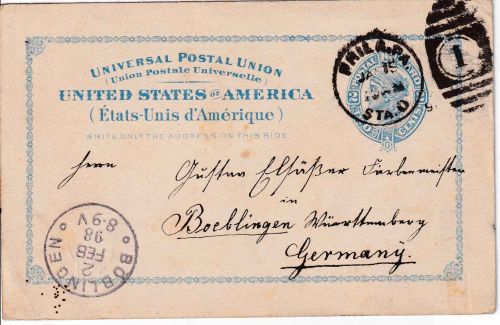 UNIVERSAL POSTAL UNION
(Union Postale Universelle)
UNITED STATES OF AMERICA
(États-Unis d'Amérique)
WRITE ONLY THE ADDRESS ON THIS SIDE
PHILA.PA.
STA.O
1
Herrn
Gustav Elſäßer Färbermeister
in
Boeblingen Württemberg
Germany.
BÖBLINGEN
2
FEB
98
8-9 V